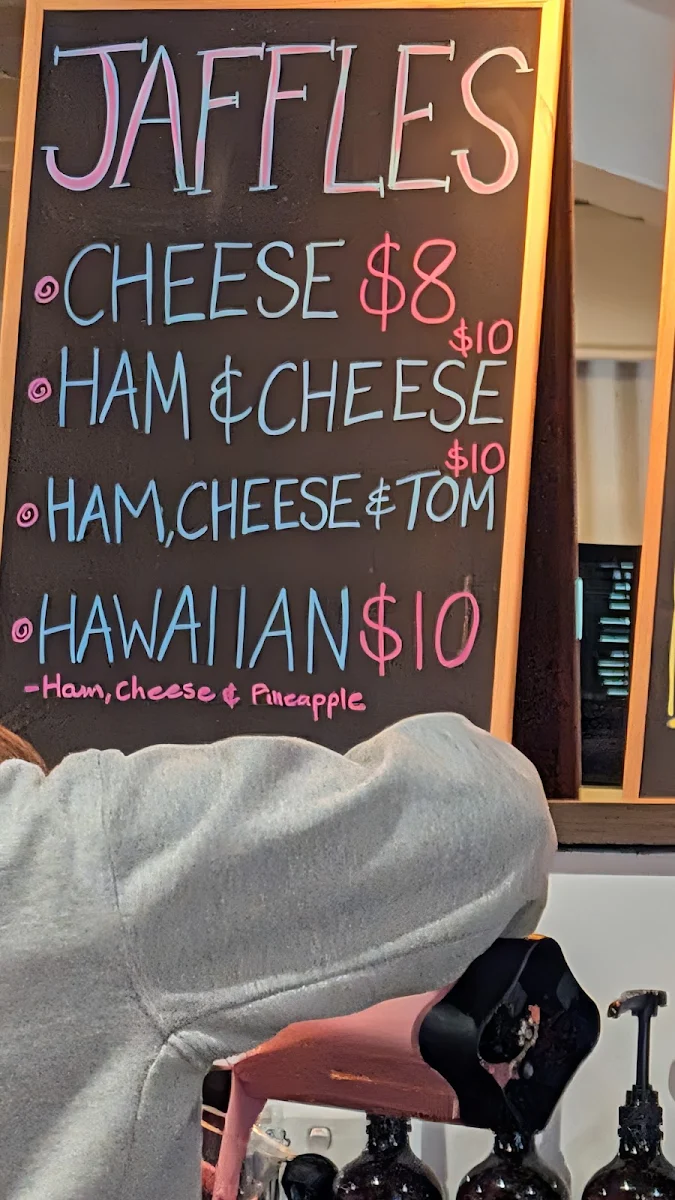 JAFFLES
CHEESE $8
$10
HAM & CHEESE
$10
HAM, CHEESE & TOM
HAWAIIAN $10
- Ham, Cheese & Pineapple